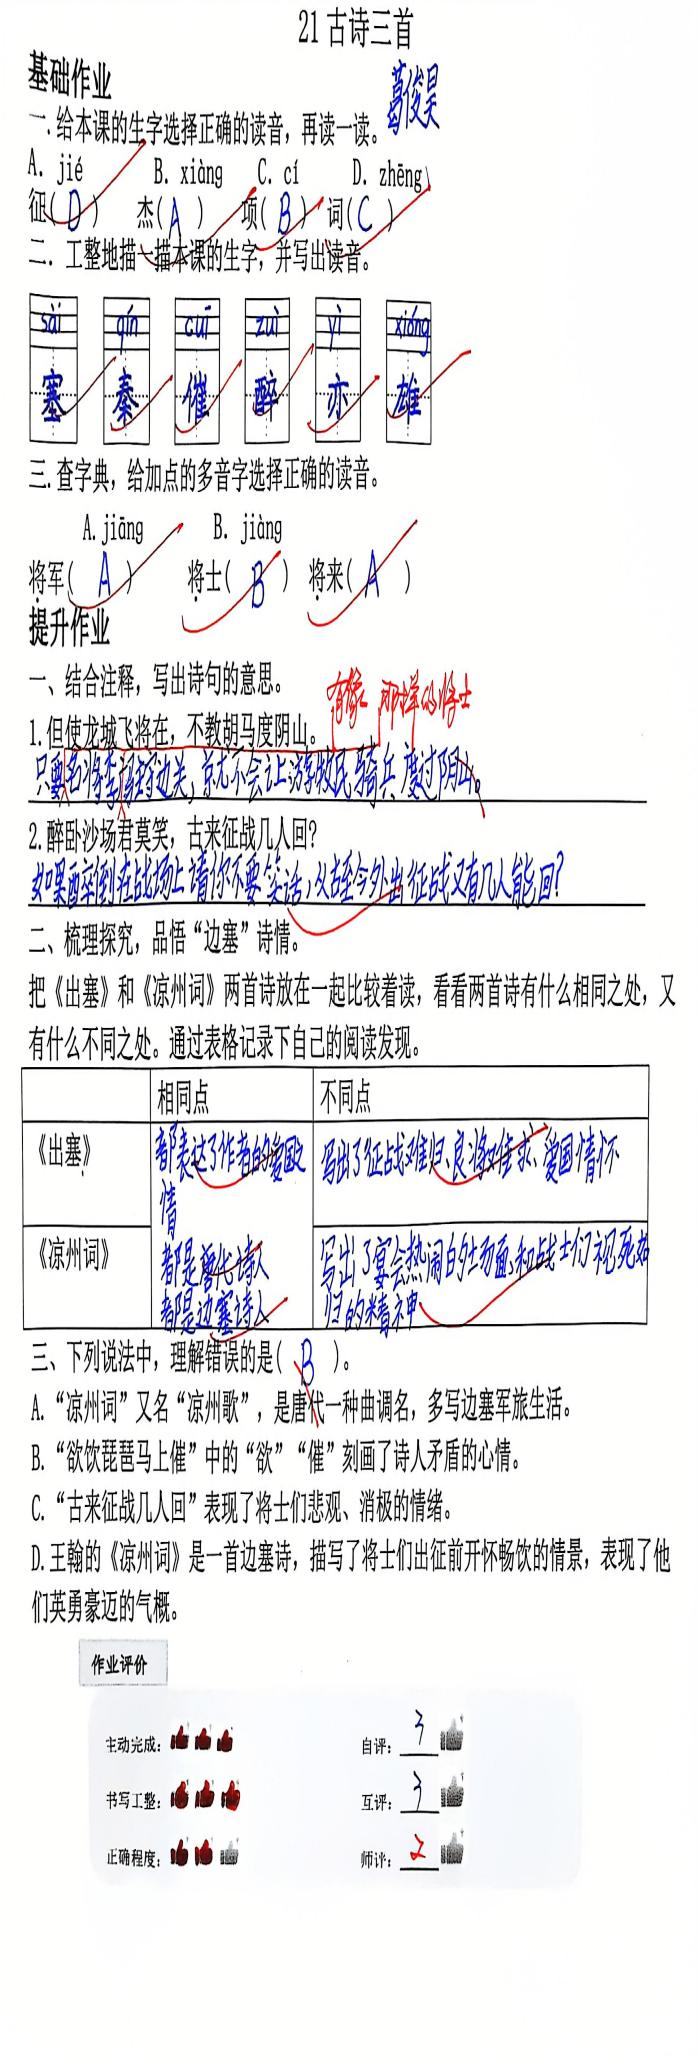 21 古诗三首
葛俊昊
基础作业
一.给本课的生字选择正确的读音，再读一读。
A. jié B. xiàng C. cí D. zhēng
征(D) 杰(A) 项(B) 词(C)
二．工整地描一描本课的生字，并写出读音。
sài qín cuī zuì yì xióng
塞 秦 催 醉 亦 雄
三.查字典，给加点的多音字选择正确的读音。
A.jiāng B. jiàng
将军(A) 将士(B) 将来(A)
提升作业
一、结合注释，写出诗句的意思。
有像 那样的将士
1.但使龙城飞将在，不教胡马度阴山。
只要名将李 守边关，就不会让游牧民骑兵度过阴山。
2.醉卧沙场君莫笑，古来征战几人回?
如果醉倒在战场上请你不要笑话，从古至今外出征战又有几人能回?
二、梳理探究，品悟“边塞”诗情。
把《出塞》和《凉州词》两首诗放在一起比较着读，看看两首诗有什么相同之处，又
有什么不同之处。通过表格记录下自己的阅读发现。
相同点 不同点
《出塞》 都表达了作者的爱国之 写出了征战难归、良将难求、爱国情怀
情
《凉州词》 都是唐代诗人 写出了宴会热闹的场面、和战士们视死如
都是边塞诗人 归的精神
三、下列说法中，理解错误的是( B )。
A.“凉州词”又名“凉州歌”，是唐代一种曲调名，多写边塞军旅生活。
B.“欲饮琵琶马上催”中的“欲”“催”刻画了诗人矛盾的心情。
C.“古来征战几人回”表现了将士们悲观、消极的情绪。
D.王翰的《凉州词》是一首边塞诗，描写了将士们出征前开怀畅饮的情景，表现了他
们英勇豪迈的气概。
作业评价
主动完成： 自评： 3
书写工整： 互评： 3
正确程度： 师评： 2